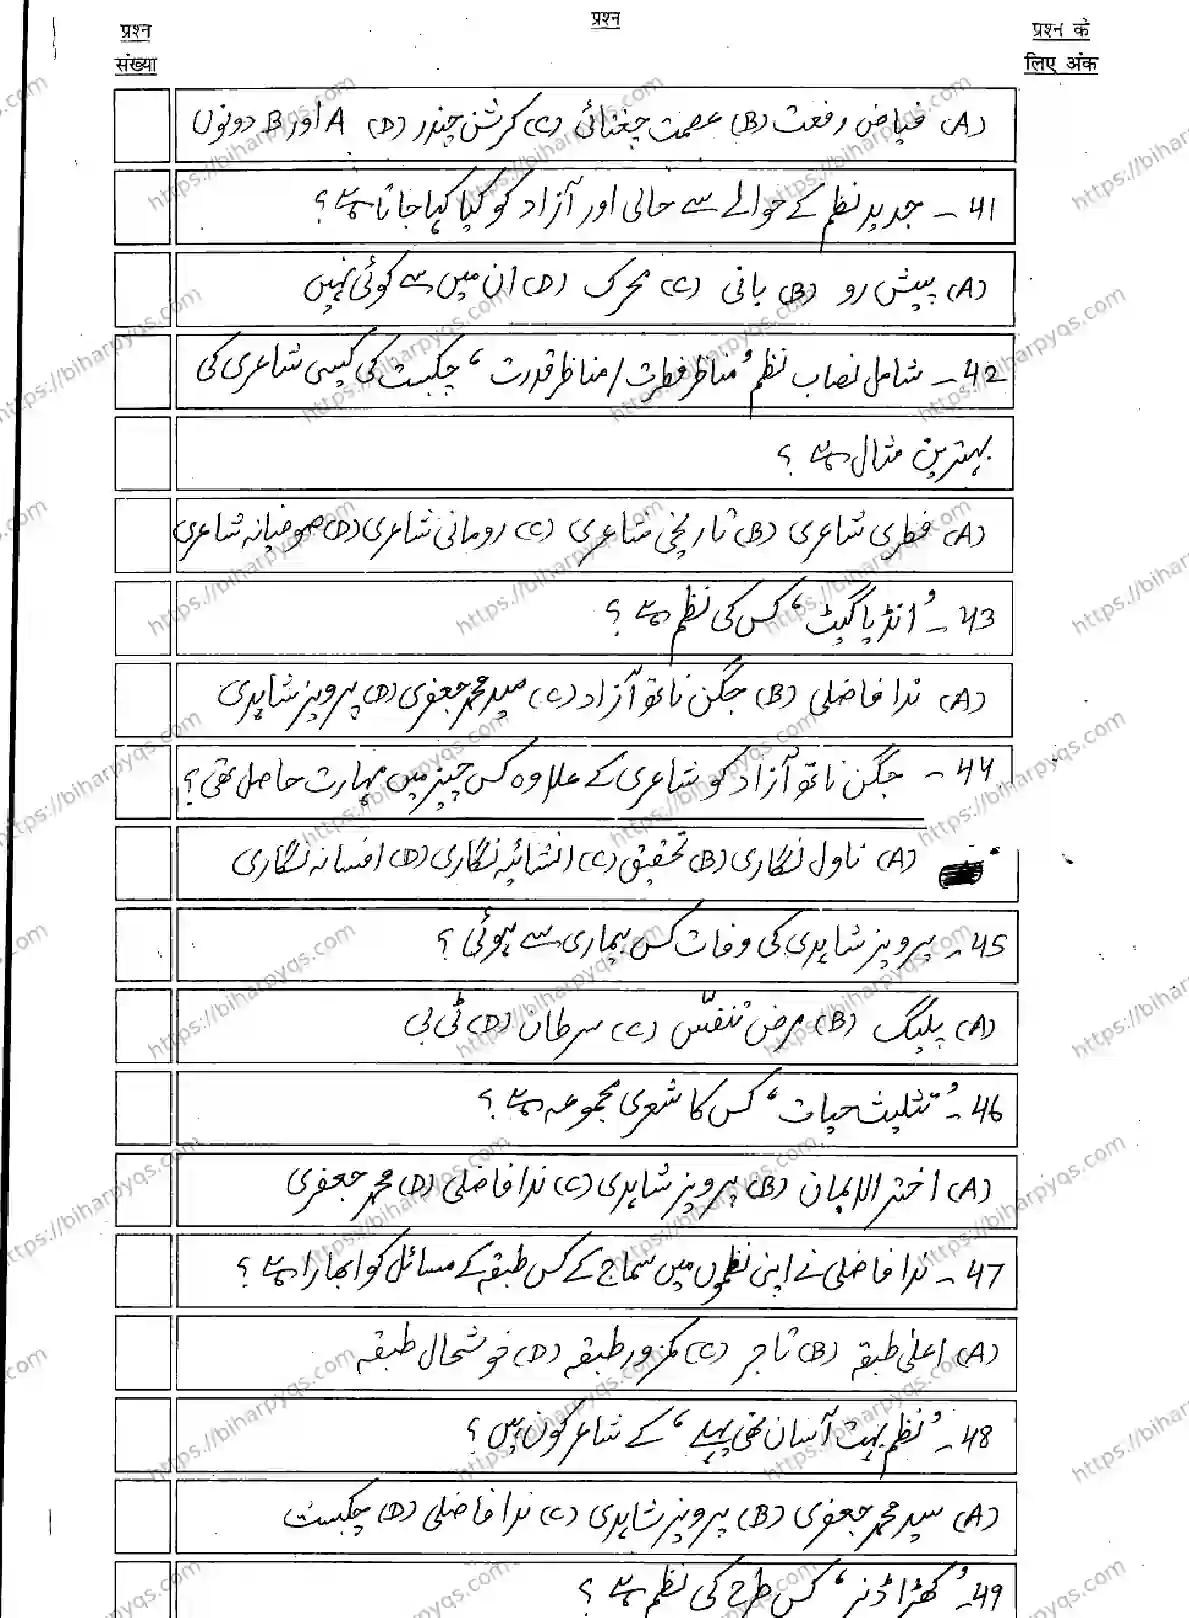 प्रश्न संख्या
प्रश्न
प्रश्न के लिए अंक
(A) فیاض رفعت (B) عصمت چغتائی (C) کرشن چندر (D) A اور B دونوں
41 - جدید نظم کے حوالے سے حالی اور آزاد کو کیا کہا جاتا ہے؟
(A) پیش رو (B) بانی (C) محرک (D) ان میں سے کوئی نہیں
42 - شامل نصاب نظم ’مناظر فطرت / مناظر قدرت‘ چکبست کی کیسی شاعری کی
بہترین مثال ہے؟
(A) فطری شاعری (B) تاریخی شاعری (C) رومانی شاعری (D) صوفیانہ شاعری
43 - ’انڈیا گیٹ‘ کس کی نظم ہے؟
(A) ندا فاضلی (B) جگن ناتھ آزاد (C) سید محمد جعفری (D) پرویز شاہدی
44 - جگن ناتھ آزاد کو شاعری کے علاوہ کس چیز میں مہارت حاصل تھی؟
(A) ناول نگاری (B) تحقیق (C) انشائیہ نگاری (D) افسانہ نگاری
45 - پرویز شاہدی کی وفات کس بیماری سے ہوئی؟
(A) پلیگ (B) مرض تنفّس (C) سرطان (D) ٹی بی
46 - ’تثلیث حیات‘ کس کا شعری مجموعہ ہے؟
(A) اختر الایمان (B) پرویز شاہدی (C) ندا فاضلی (D) محمد جعفری
47 - ندا فاضلی نے اپنی نظموں میں سماج کے کس طبقہ کے مسائل کو ابھارا ہے؟
(A) اعلیٰ طبقہ (B) تاجر (C) کمزور طبقہ (D) خوشحال طبقہ
48 - ’نظم بہت آسان تھی پہلے‘ کے شاعر کون ہیں؟
(A) سید محمد جعفری (B) پرویز شاہدی (C) ندا فاضلی (D) چکبست
49 - ’کھڑا ڈنر‘ کس طرح کی نظم ہے؟
https://biharpyqs.com